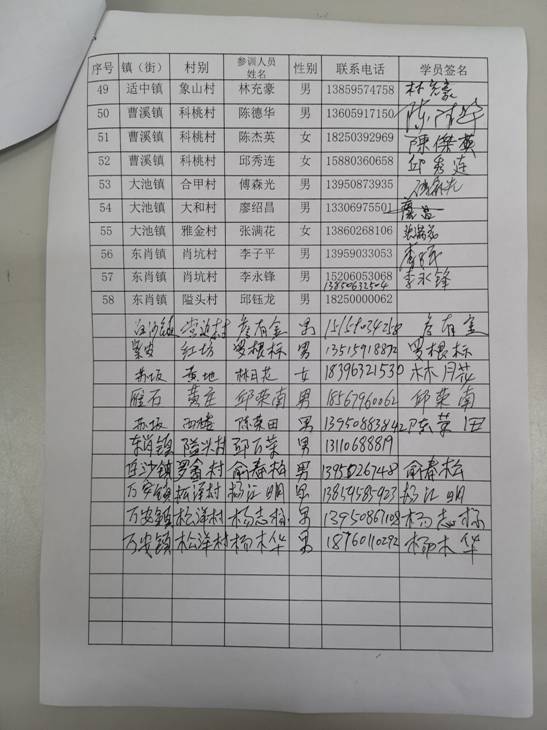 序号 镇（街） 村别 参训人员姓名 性别 联系电话 学员签名
49 适中镇 象山村 林充豪 男 13859574758 林充豪
50 曹溪镇 科桃村 陈德华 男 13605917150
51 曹溪镇 科桃村 陈杰英 女 18250392969 陳傑英
52 曹溪镇 科桃村 邱秀连 女 15880360658 邱秀连
53 大池镇 合甲村 傅森光 男 13950873935
54 大池镇 大和村 廖绍昌 男 13306975501
55 大池镇 雅金村 张满花 女 13860268106 张满花
56 东肖镇 肖坑村 李子平 男 13959033053
57 东肖镇 肖坑村 李永锋 男 15206053068 李永锋
13850632504
58 东肖镇 隘头村 邱钰龙 男 18250000062
男
红坊 男 13515918872
林月花 女 18396321530 林月花
雁石 黄庄 邱荣南 男 18567960062 邱荣南
陈荣田 男 13950883842 陈荣田
东肖镇 隘头村 邱万荣 男 13110688819
罗畲村 俞春松 男 13950267248 俞春松
万安镇 松洋村 杨江明 男 13859585923 杨江明
万安镇 松洋村 杨志标 男 13950867108 杨志标
万安镇 松洋村 杨木华 男 18760110292 杨木华